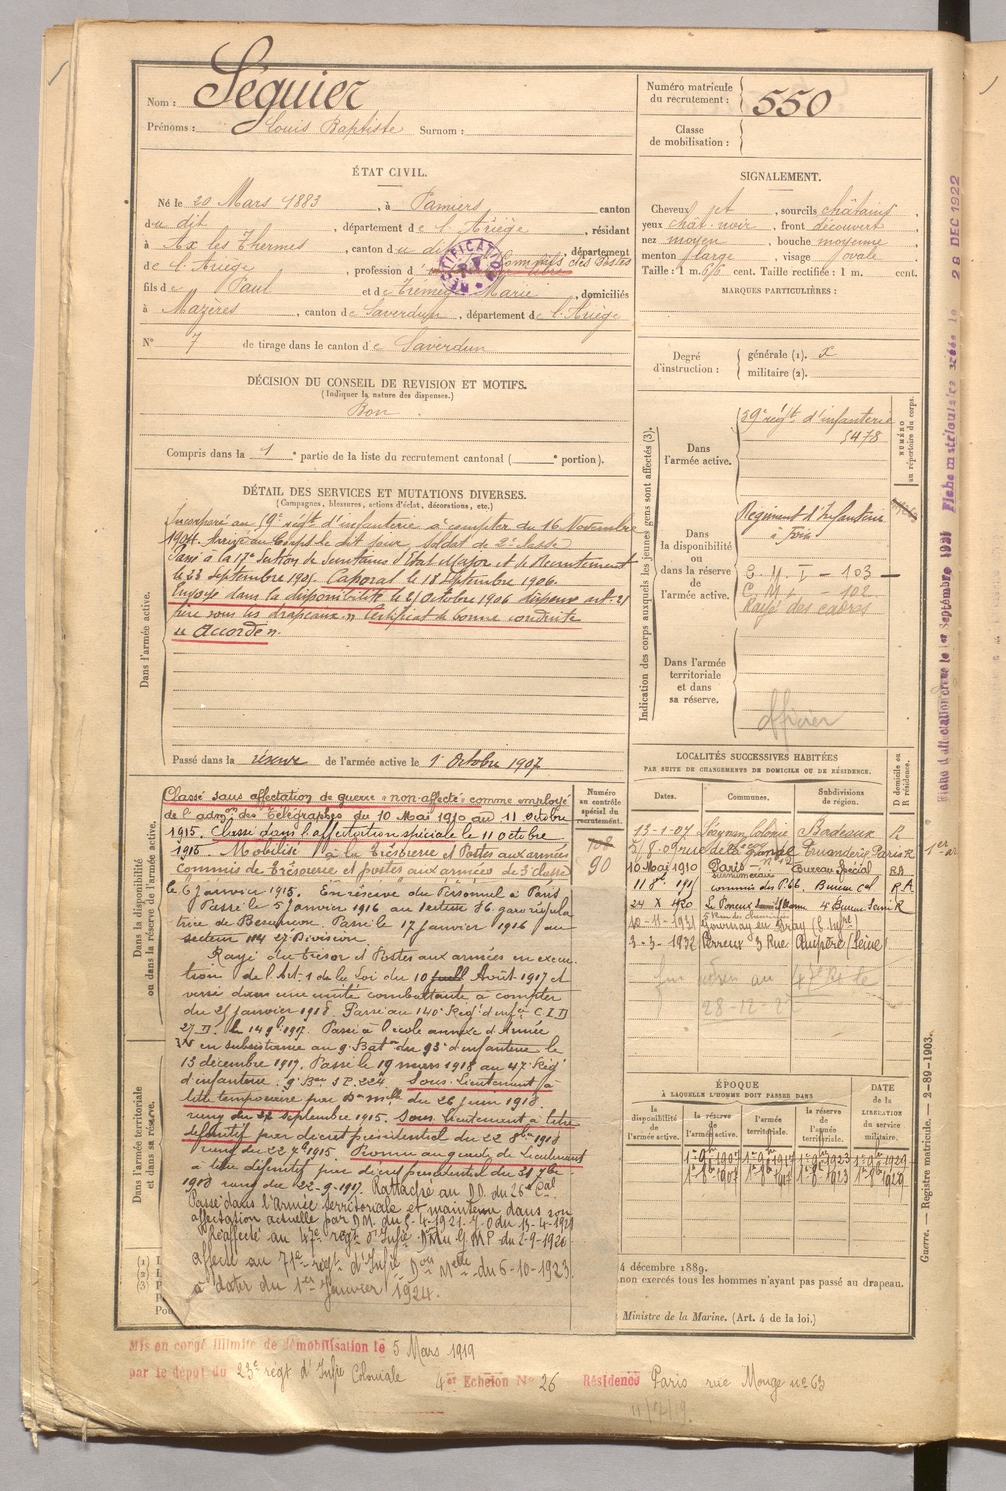 Nom : Séguier
Prénoms : Louis Baptiste Surnom :
Numéro matricule du recrutement : 550
Classe de mobilisation :
ÉTAT CIVIL.
Né le 20 Mars 1883, à Pamiers canton
du dit, département de l'Ariège, résidant
à Ax les Thermes, canton du dit, département
de l'Ariège, profession de Commis des Postes
fils de Paul et de Marie, domiciliés
à Mazères, canton de Saverdun, département de l'Ariège
N° 7 de tirage dans le canton de Saverdun
RECTIFICATION
SIGNALEMENT.
Cheveux , sourcils châtains,
yeux chât. noir, front découvert,
nez moyen, bouche moyenne
menton large, visage ovale.
Taille : 1 m. cent. Taille rectifiée : 1 m. cent.
MARQUES PARTICULIÈRES :
Degré d'instruction : générale (1). x
militaire (2).
DÉCISION DU CONSEIL DE REVISION ET MOTIFS.
(Indiquer la nature des dispenses.)
Bon
Compris dans la 1e partie de la liste du recrutement cantonal ( e portion).
DÉTAIL DES SERVICES ET MUTATIONS DIVERSES.
(Campagnes, blessures, actions d'éclat, décorations, etc.)
Dans l'armée active.
Incorporé au 59e régt d'infanterie à compter du 16 Novembre
1904. Arrivé au Corps le dit jour, soldat de 2e classe
Passé à la 17e Section de Secrétaires d'Etat Major et de Recrutement
le 23 septembre 1905. Caporal le 18 Septembre 1906.
Envoyé dans la disponibilité le Octobre 1906 dispensé art. 21
frère sous les drapeaux. " Certificat de bonne conduite
" Accordé ".
Passé dans la réserve de l'armée active le 1 Octobre 1907
Indication des corps auxquels les jeunes gens sont affectés (3).
Dans l'armée active.
59e régt d'infanterie
5478
NUMÉRO au répertoire du corps.
Dans la disponibilité ou dans la réserve de l'armée active.
Régiment d'Infanterie
à Foix
103
102
Rayé des cadres
Dans l'armée territoriale et dans sa réserve.
officier
Dans la disponibilité ou dans la réserve de l'armée active.
Dans l'armée territoriale et dans sa réserve.
Classé sans affectation de guerre "non-affecté" comme employé
de l'admon des Télégraphes du 10 Mai 1910 au 11 octobre
1915. Classé dans l'affectation spéciale le 11 Octobre
1915. Mobilisé à la Trésorerie et Postes aux armées
Commis de Trésorerie et postes aux armées de 3e classe
le 6 janvier 1915. En réserve du Personnel à Paris
Passé le 5 janvier 1916 au secteur 86. gare régula
trice de Besançon. Passé le 17 janvier 1916 au
secteur 114 27e Division.
Rayé du Trésor et Postes aux armées en exécu
tion de l'Art. 1 de la Loi du 10 Août 1917 et
versé dans une unité combattante à compter
du janvier 1918. Passé au 140e Rég. d'infie C.I.D
27 D. le 1917. Passé à l'école annexe d'Armée
en subsistance au 9e Baton du 93e d'infanterie le
13 décembre 1917. Passé le 19 mars 1918 au 47e Rég
d'infanterie. 9e Bon S.P. 224. Sous-Lieutenant à
titre temporaire par du 26 juin 1918.
rang du septembre 1915. Sous lieutenant à titre
définitif par décret présidentiel du 22 8bre 1918
rang du 22 1915. Promu au grade de Lieutenant
à titre définitif par décret présidentiel du 31 xbre
1918 rang du 22-9-1917. Rattaché au D.D. du 26e Cal
Passé dans l'Armée territoriale et maintenu dans son
affectation actuelle par D.M. du -4-1921. J.O du 13-4-1921
Réaffecté au 47e régt d'Infie. du G.M.P du 2-9-1920
affecté au 71e régt d'Infie Don Melle du 6-10-1923.
à dater du 1er Janvier 1924.
Numéro au contrôle spécial du recrutement.
108
90
LOCALITÉS SUCCESSIVES HABITÉES
PAR SUITE DE CHANGEMENTS DE DOMICILE OU DE RÉSIDENCE.
Dates. Communes. Subdivisions de région. D domicile ou R résidence.
13-1-07 Bordeaux R
8-09 rue de la grande Truanderie Paris R
10 Mai 1910 Paris Bureau Spécial RA
Surnuméraire
11 8bre 191 commis des P.T.T. Bureau Cal R.A
24 X 420 Le Perreux 4e Bureau Seine R
10-11-1931 Gournay en Bray (S. Infre)
3-3-1932 Perreux 3 Rue Quipère (Seine)
28-12-2
ÉPOQUE
À LAQUELLE L'HOMME DOIT PASSER DANS
la disponibilité de l'armée active. la réserve de l'armée active. l'armée territoriale. la réserve de l'armée territoriale.
DATE de la LIBÉRATION du service militaire.
1-9bre 1907 1-9bre 1917 1-9bre 1923 1-9bre 1929
1-8bre 1907 1-8bre 1917 1-8bre 1923 1-8bre 1929
4 décembre 1889.
non exercés tous les hommes n'ayant pas passé au drapeau.
Ministre de la Marine. (Art. 4 de la loi.)
(1)
(2)
(3)
Guerre. — Registre matricule. — 2-89-1903.
Fiche d'affectation créée le 1er Septembre 1921 Fiche matriculaire créée le 28 DEC 1922
Mis en congé illimité de démobilisation le 5 Mars 1919
par le dépôt du 23e régt d'Infie Coloniale 4er Echelon N° 26 Résidence Paris rue Monge n° 63
11/7/19.